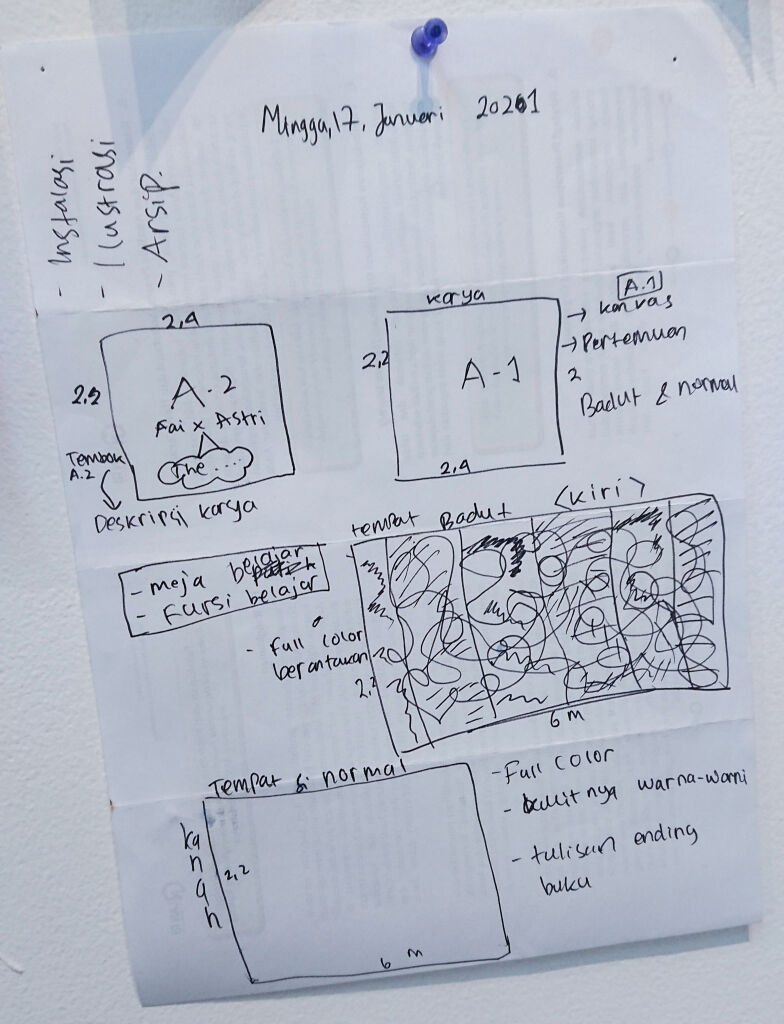 Minggu, 17, Januari 2021
- Instalasi
- Ilustrasi
- Arsip.
2,4
2,2
A-2
Fai x Astri
The ....
Tembok
A.2
Deskripsi karya
karya
2,2
A-1
2,4
A.1
→ kanvas
→ Pertemuan
2
Badut & normal
- meja belajar
- kursi belajar
tempat Badut (kiri)
- Full color
berantakan
2,2
6 m
Tempat si normal
kanan
2,2
6 m
- Full color
- nya warna-warni
- tulisan ending
buku